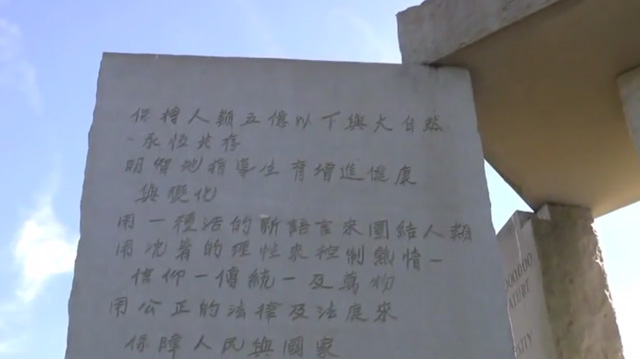 保持人類五億以下與大自然
永恆共存
明智地指導生育增進健康
與變化
用一種活的新語言來團結人類
用沈著的理性來控制熱情—
信仰—傳統—及萬物
用公正的法律及法庭來
保障人民與國家